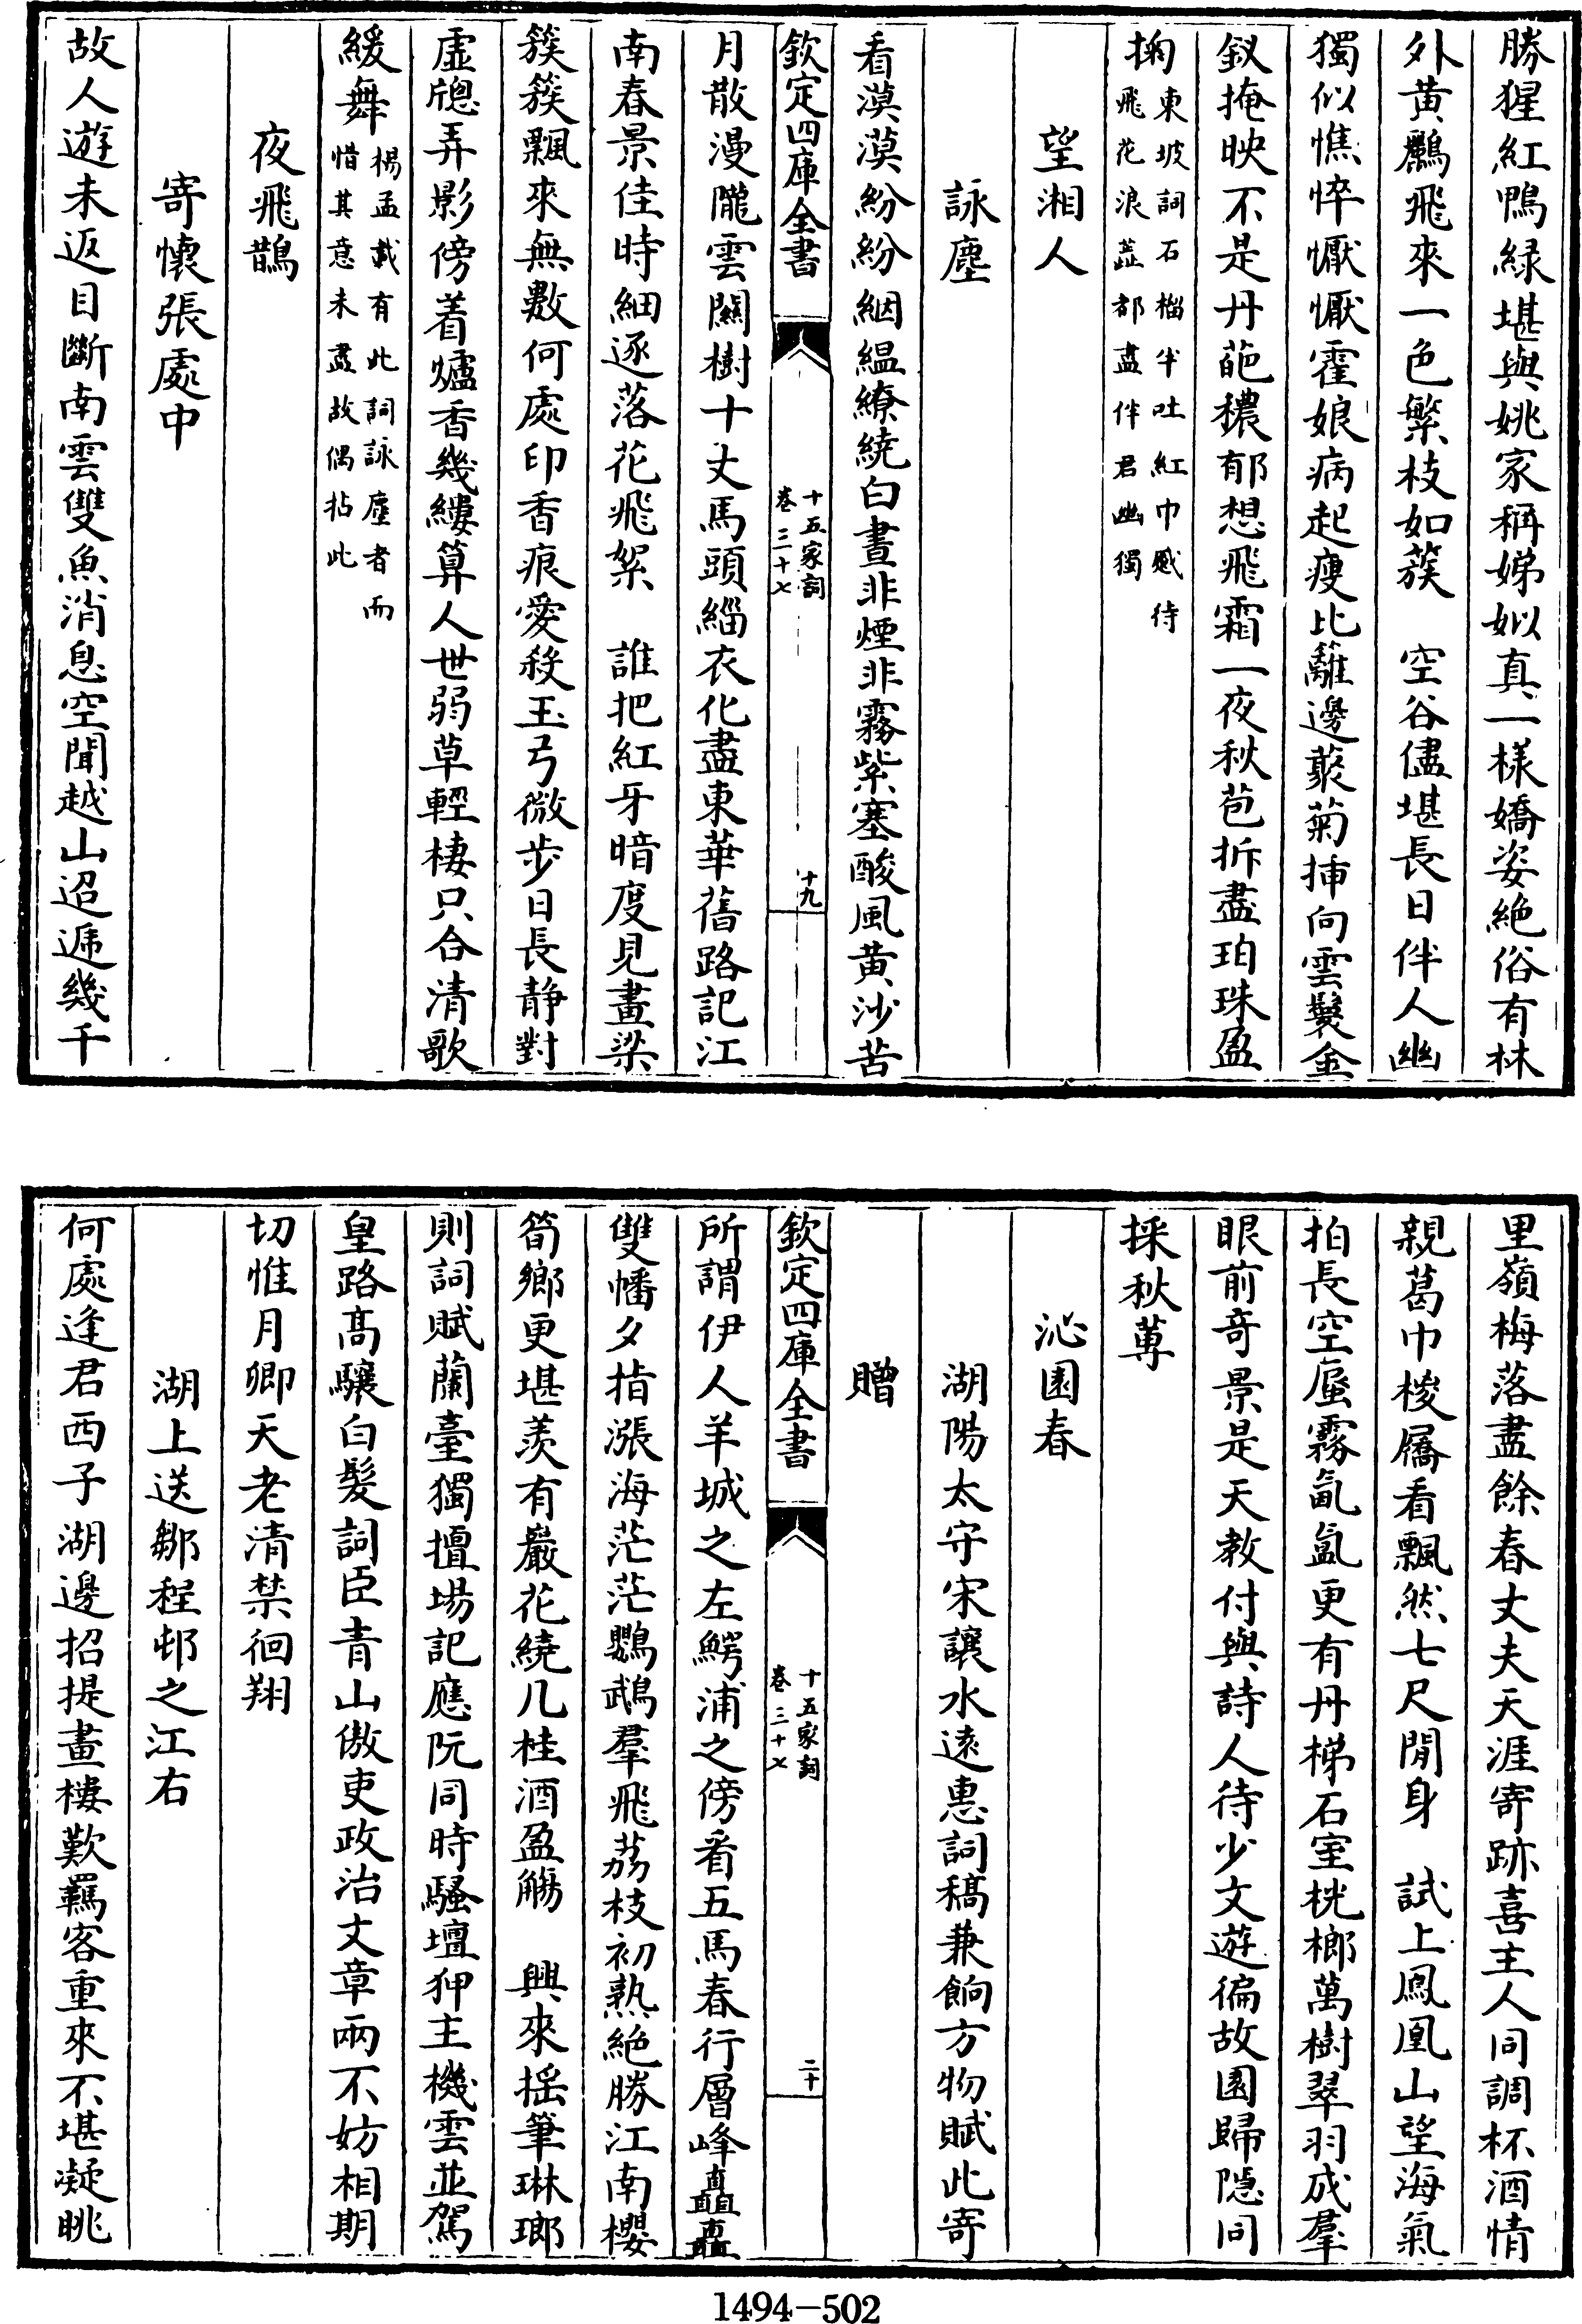 勝猩紅鴨緑堪與姚家稱娣姒真一樣嬌姿絶俗有林
外黄鸝飛來一色繁枝如蔟　空谷儘堪長日伴人幽
獨似憔悴懨懨霍娘病起痩比籬邊叢菊揷向雲鬟金
釵掩映不是丹葩穠郁想飛霜一夜秋苞拆盡珀珠盈
掬東坡詞石榴半吐紅巾蹙待
飛花浪蕋都盡伴君幽獨
望湘人
詠塵
看漠漠紛紛絪緼繚繞白晝非煙非霧紫塞酸風黄沙苦
欽定四庫全書
十五家詞
卷三十七
十九
月散漫隴雲關樹十丈馬頭緇衣化盡東華舊路記江
南春景佳時細逐落花飛絮　誰把紅牙暗度見畫梁
簇簇飄來無數何處印香痕愛殺玉弓微步日長静對
虚牕弄影傍着爐香幾縷算人世弱草輕棲只合清歌
緩舞楊孟載有此詞詠塵者而
惜其意未盡故偶拈此
夜飛鵲
寄懷張處中
故人遊未返目斷南雲雙魚消息空聞越山迢遞幾千
里嶺梅落盡餘春丈夫天涯寄跡喜主人同調杯酒情
親葛巾梭屩看飄然七尺閒身　試上鳳凰山望海氣
拍長空蜃霧氤氲更有丹梯石室桄榔萬樹翠羽成羣
眼前奇景是天教付與詩人待少文遊徧故園歸隱同
採秋蓴
沁園春
湖陽太守宋讓水逺惠詞稿兼餉方物賦此寄
贈
欽定四庫全書
十五家詞
卷三十七
二十
所謂伊人羊城之左鰐浦之傍看五馬春行層峰矗矗
雙幡夕指漲海茫茫鸚鵡羣飛荔枝初熟絶勝江南櫻
筍鄉更堪羨有巖花繞几桂酒盈觴　興來揺筆琳瑯
則詞賦蘭臺獨擅場記應阮同時騷壇狎主機雲並駕
皇路髙驤白髮詞臣青山傲吏政治文章兩不妨相期
切惟月卿天老清禁徊翔
湖上送鄒程邨之江右
何處逢君西子湖邊招提畫樓歎羈客重來不堪凝眺
1494-502